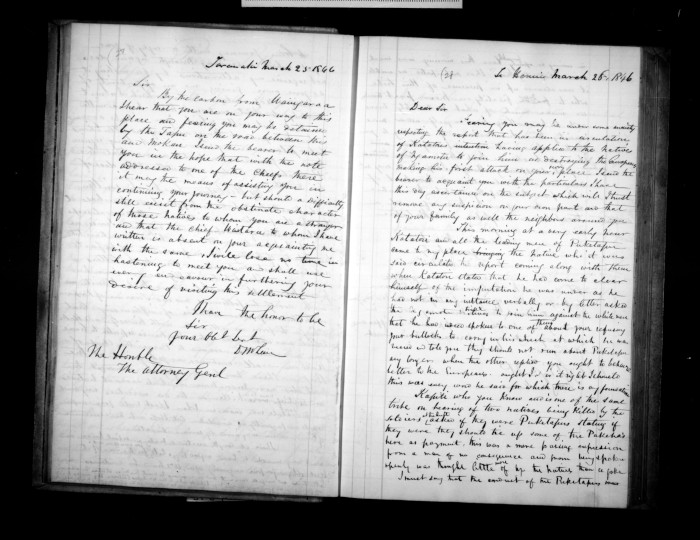 Taranaki March 25 1846
Sir
By the carrier from Waingaroa
I hear that you are on your way to this
place and fearing you may be detained
by the Tapu on the road between this
and Mokau I send the bearer to meet
you in the hope that with the note
addressed to one of the Chiefs there
it may be the means of assisting you in
continuing your journey - but should a difficulty
still exist from the obstinate character
of those natives to whom you are a stranger
and that the chief to whom I have
written is absent on your acquainting me
with the same, I will lose no time in
hastening to meet you and shall use
every endeavour in furthering your
desire of visiting this settlement
I have the honor to be
Sir
your obt Sevt
The Honble
The Attorney Genl
(28)
March 26, 1846
Dear Sir
Fearing you may be under some anxiety
respecting the report that has been in circulation
of Katatore intention having applied to the Natives
of to join him in destroying the Europeans
making his first attack on your place, I send the
bearer to acquaint you with the particulars I have
this day ascertained on the subject which will I trust
remove any suspicion on your own part and that
of your family as well the neighbors around you
This morning at a very early hour
Katatore and all the leading men of Puketapu
came to my place the native who it was
said circulated the report coming along with them
when Katatore states that he had come to clear
himself of the imputation he was under as he
had not in any instance verbally or by letter asked
the to join him against the white men
that he had once spoken to one of them about your refusing
your bullocks to at which he was
told you they should not run about Puketapu
any longer when the other replied you ought to behave
better to the Europeans ought I or is it right I should
this was every word he said for which there is my
Kapite who you know and is one of the same
tribe on hearing of two natives being killed by the
soldiers asked if they were Puketapus stating if
they were they should tie up some of the Pakehas
here as payment, this was a mere passing expression
from a man of no consequence and from being spoken
openly was thought little more of by the natives than a joke
I must say that the conduct of the Puketapus